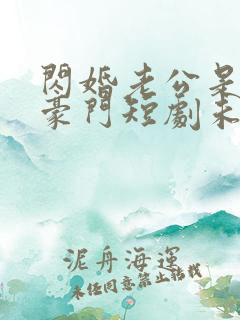 閃婚老公是
豪門短劇未
泥舟海運
未任同意禁止轉載